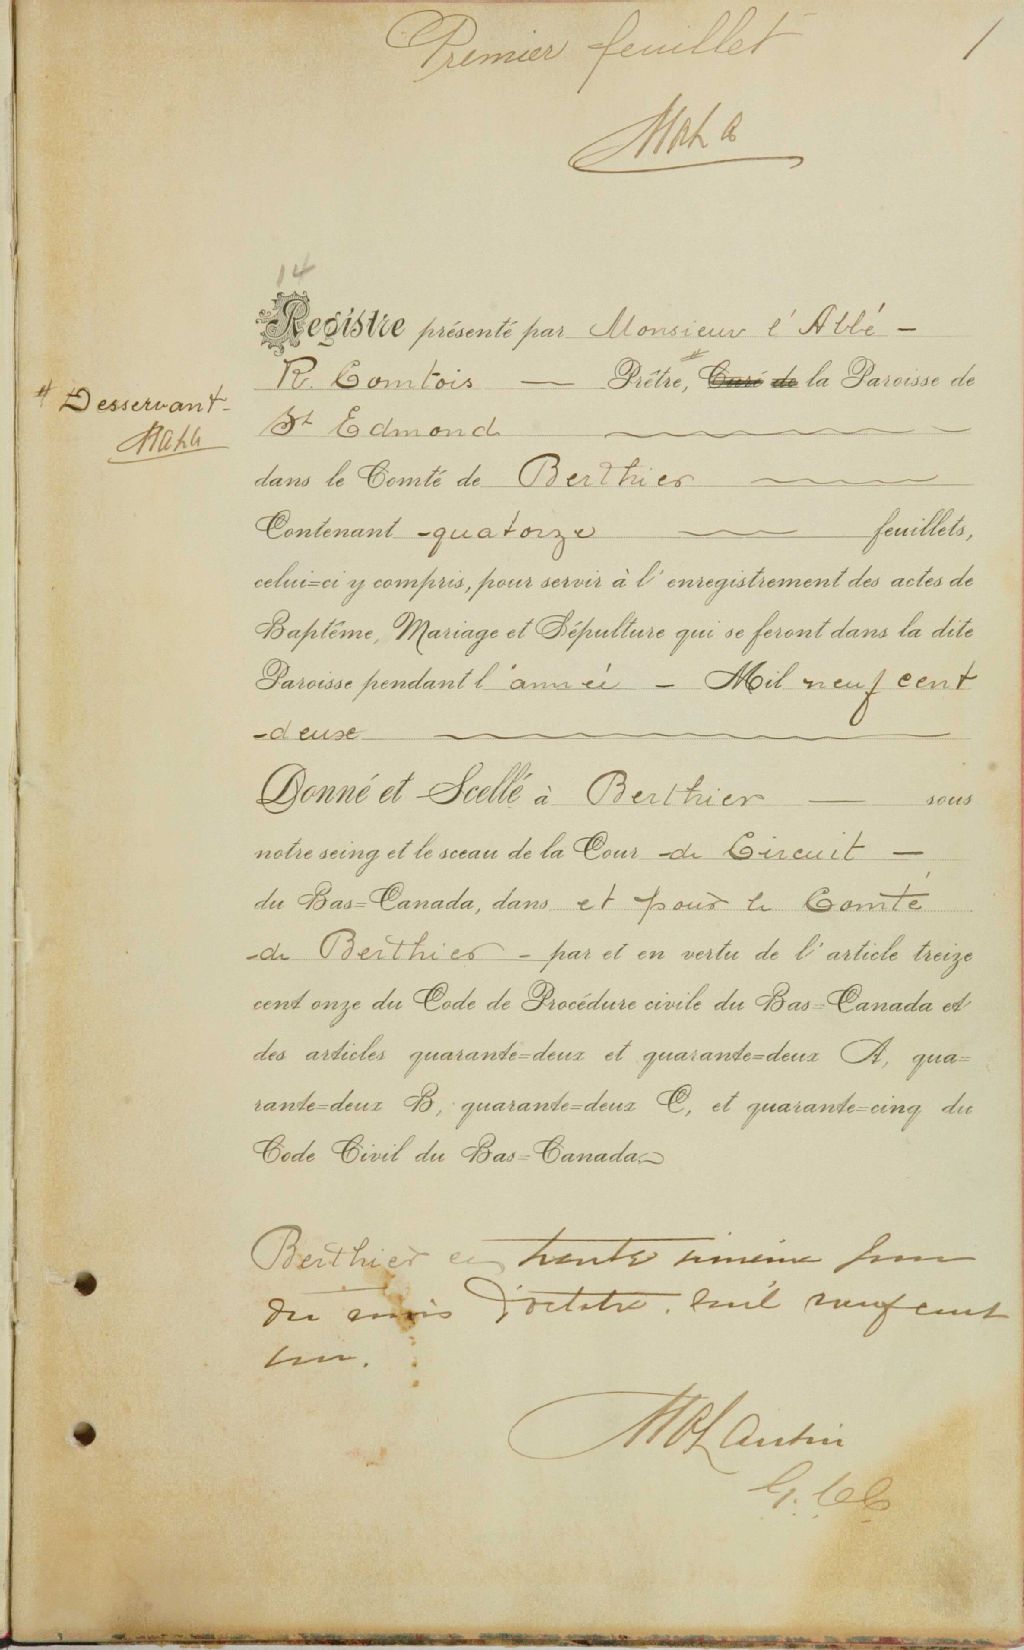 Premier feuillet
1
14
Registre présenté par Monsieur l'Abbé -
R. Comtois — Prêtre, # Curé de la Paroisse de
# Desservant -
St Edmond
dans le Comté de Berthier
Contenant - quatorze — feuillets,
celui=ci y compris, pour servir à l'enregistrement des actes de
Baptême, Mariage et Sépulture qui se feront dans la dite
Paroisse pendant l'année - Mil neuf cent
- deux
Donné et Scellé à Berthier — sous
notre seing et le sceau de la Cour - de Circuit —
du Bas=Canada, dans et pour le Comté
- de Berthier - par et en vertu de l'article treize
cent onze du Code de Procédure civile du Bas=Canada et
des articles quarante=deux et quarante=deux A, qua=
rante=deux B, quarante=deux C, et quarante=cinq du
Code Civil du Bas=Canada.
Berthier ce trente unième jour
du mois d'octobre. mil neuf cent
un.